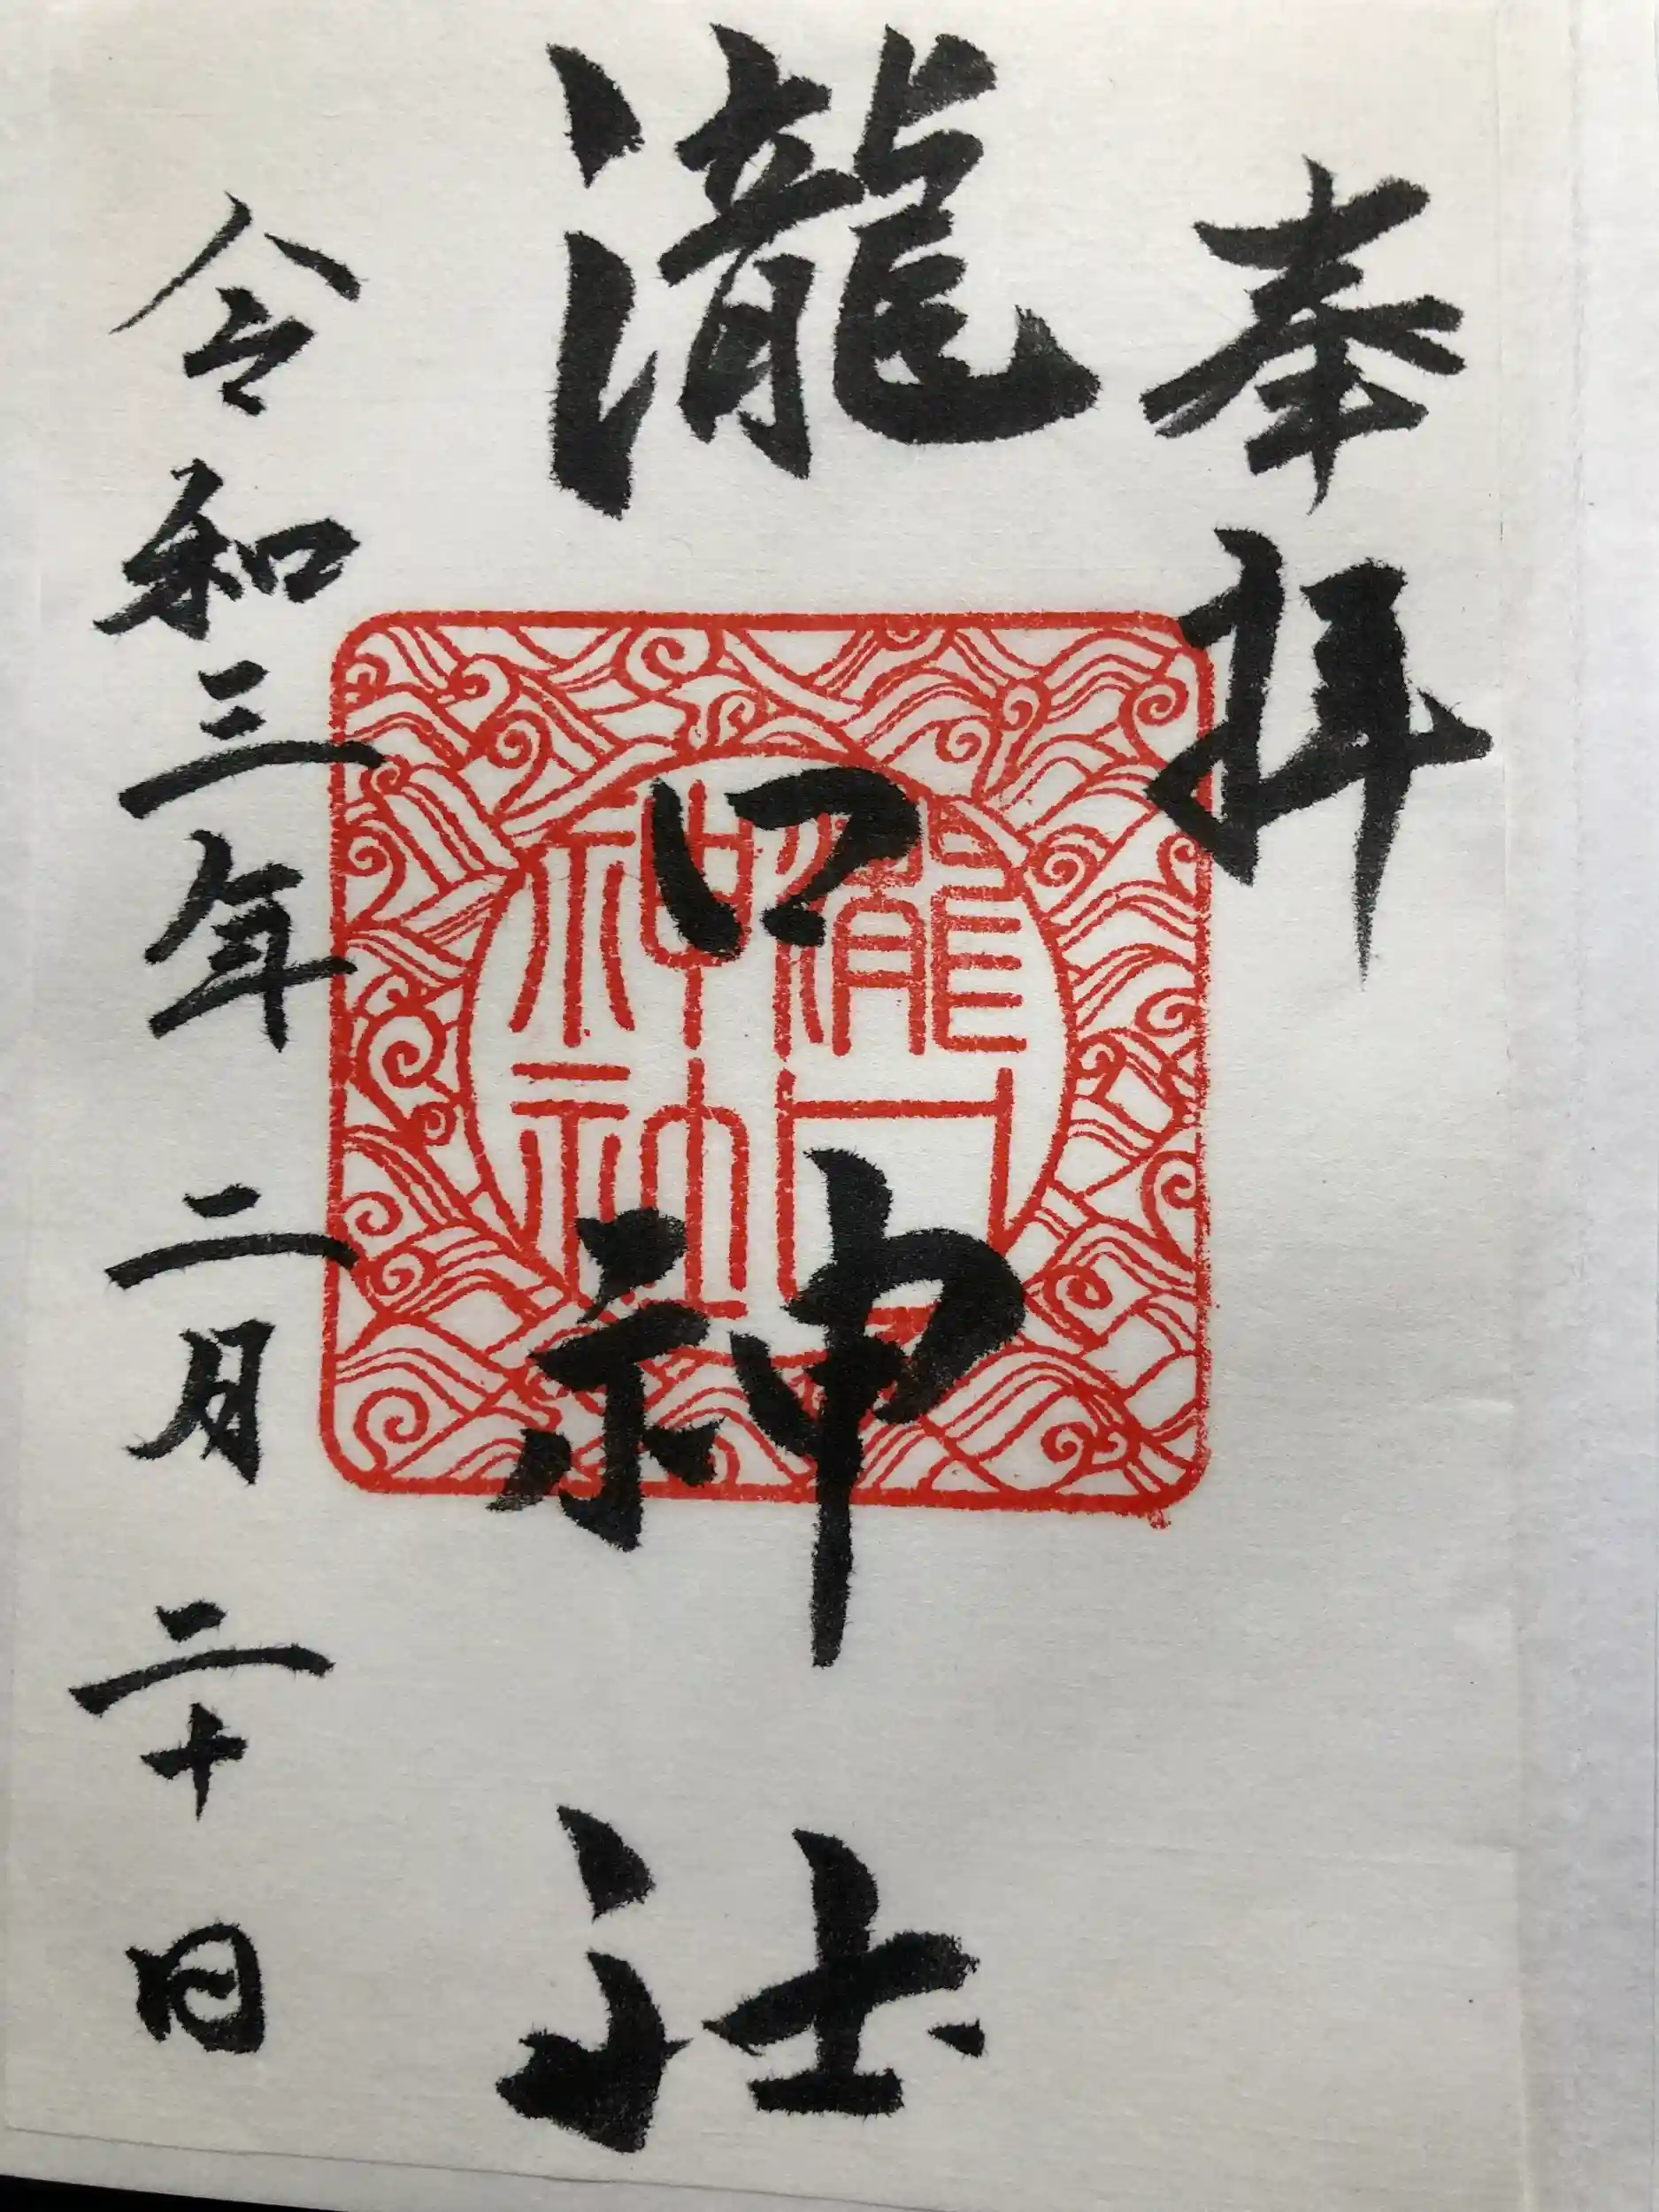 奉拝
瀧口神社
令和三年二月二十日
瀧口